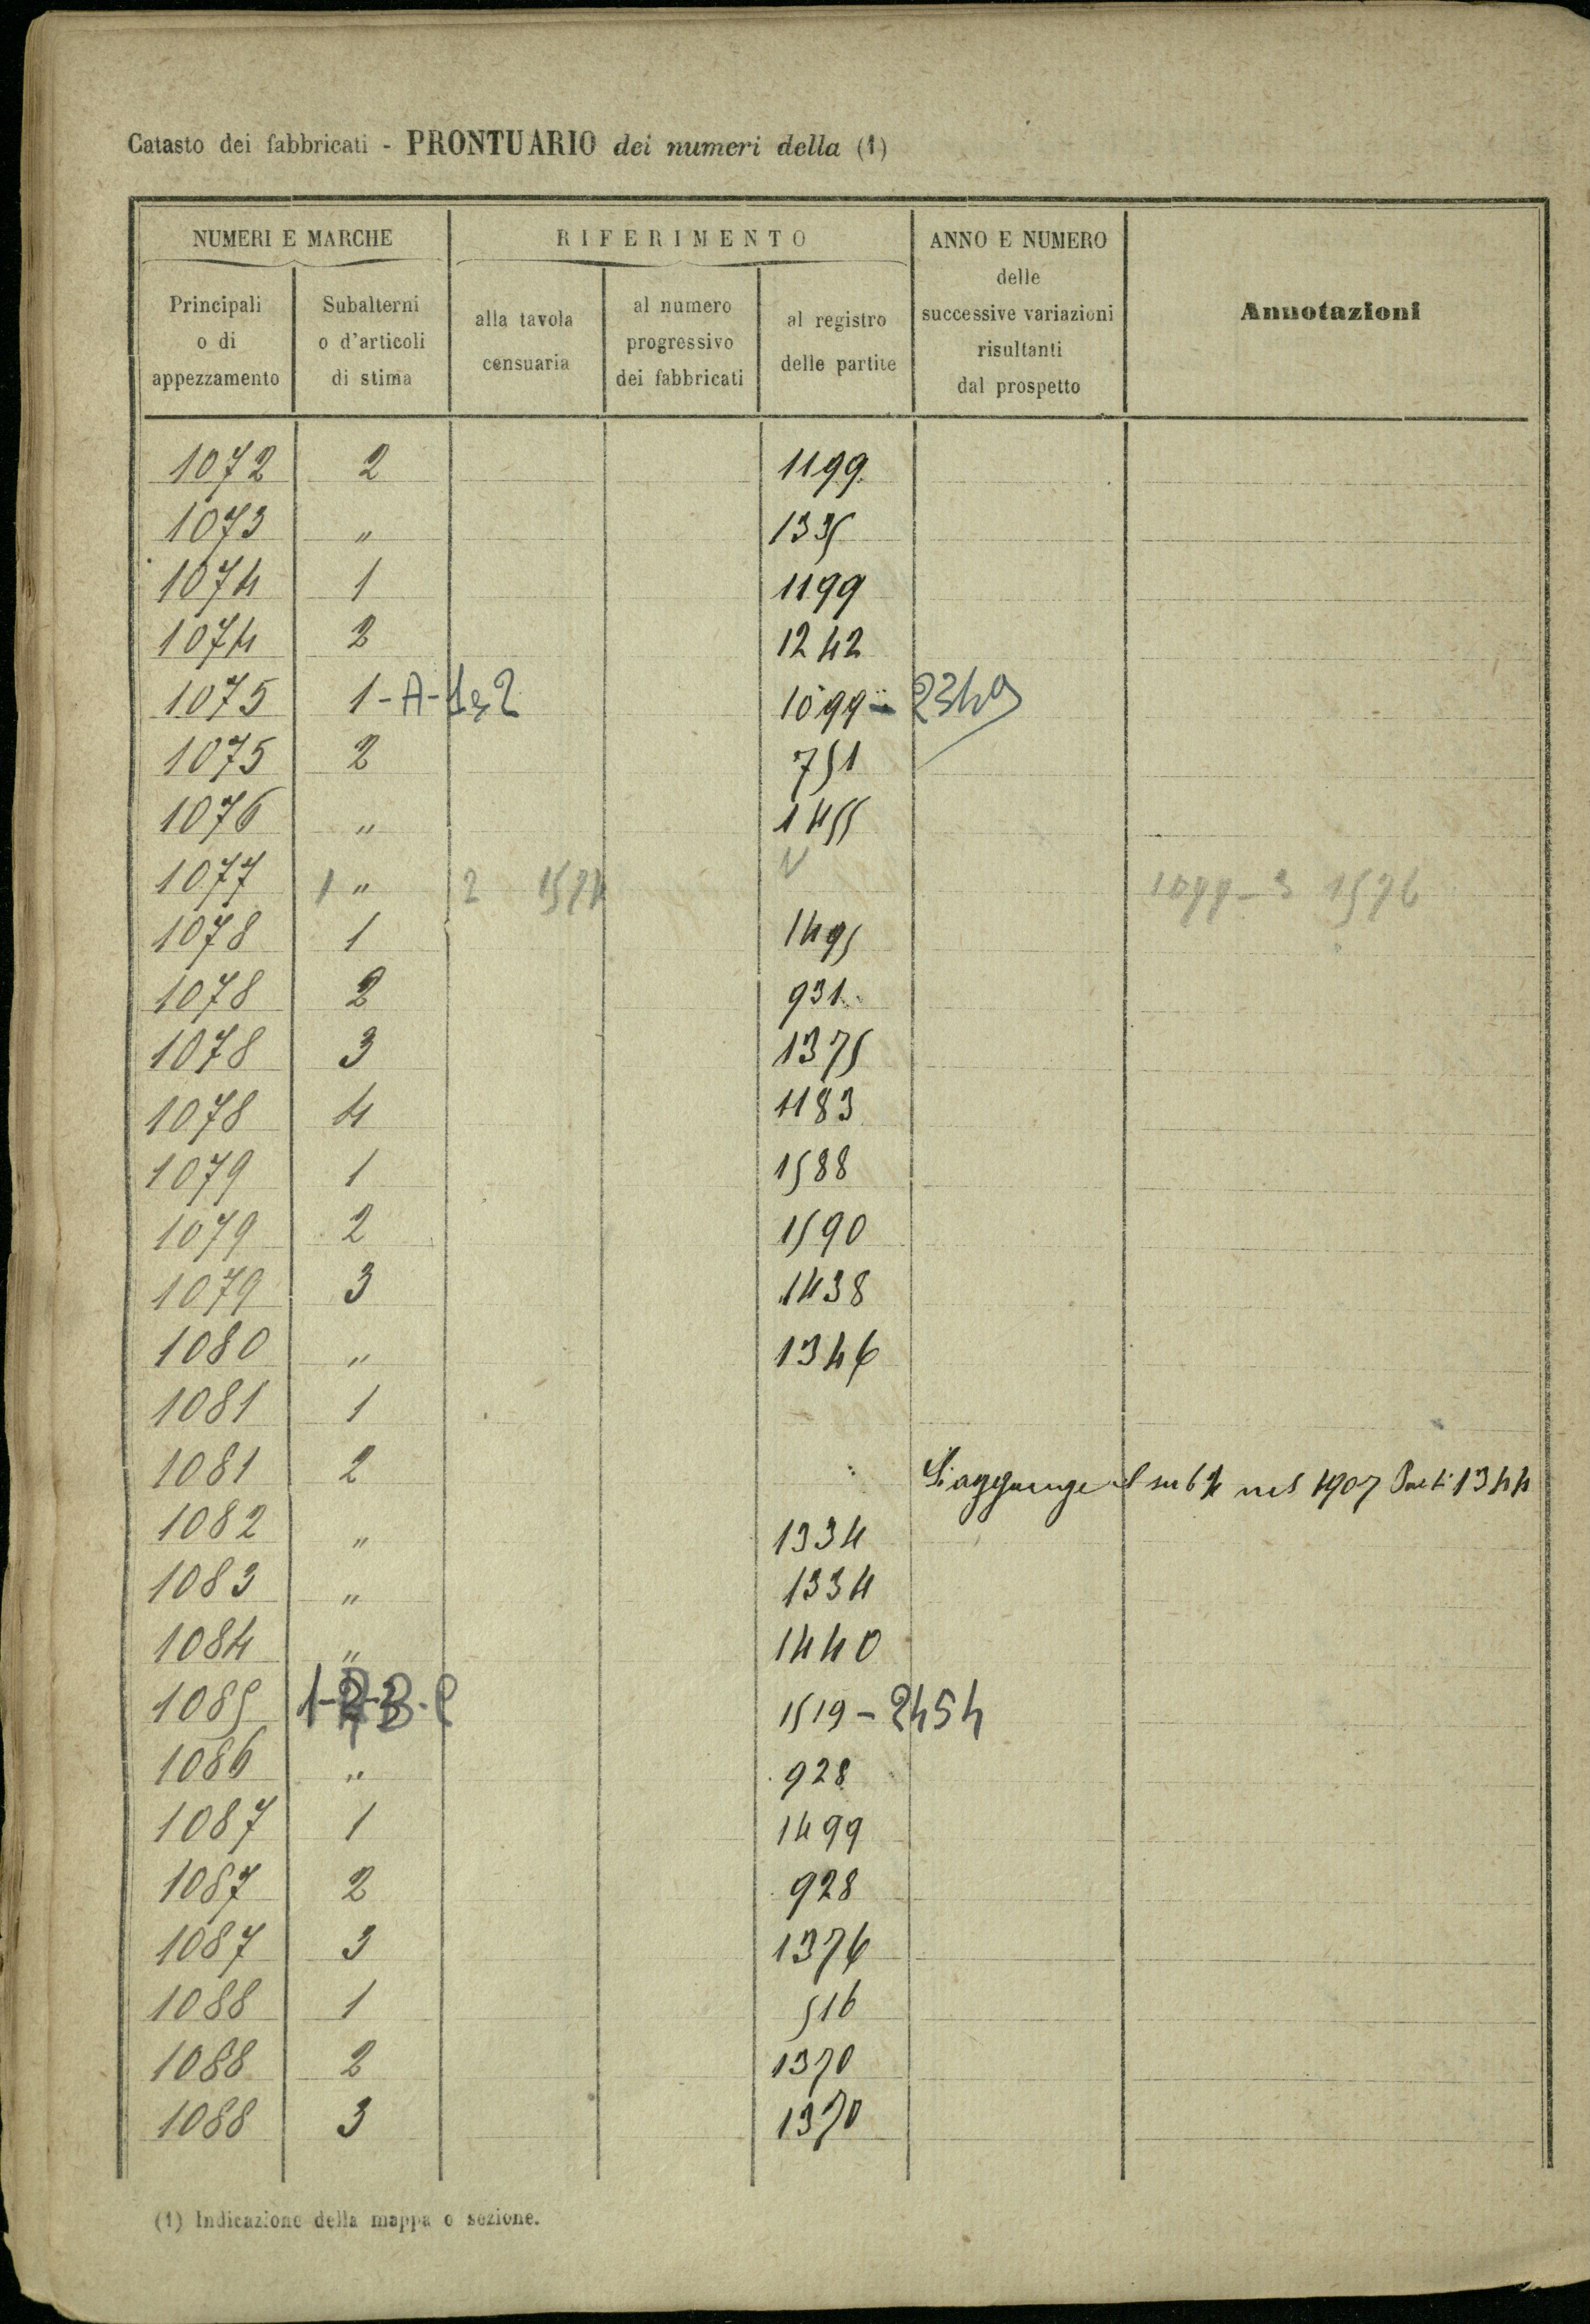 Catasto dei fabbricati - PRONTUARIO dei numeri della (1)
NUMERI E MARCHE RIFERIMENTO ANNO E NUMERO delle successive variazioni risultanti dal prospetto Annotazioni
Principali o di appezzamento Subalterni o d'articoli di stima alla tavola censuaria al numero progressivo dei fabbricati al registro delle partite
1072 2 1199
1073 " 1335
1074 1 1199
1074 2 1242
1075 1-A-1e2 1099 - 2349
1075 2 751
1076 " 1455
1077 1 " 2 1574 1077-3 1576
1078 1 1495
1078 2 931
1078 3 1375
1078 4 1183
1079 1 1588
1079 2 1590
1079 3 1438
1080 " 1346
1081 1
1081 2 Si aggiunge il sub nel 1907 1344
1082 " 1334
1083 " 1334
1084 " 1440
1085 1519 - 2454
1086 " 928
1087 1 1499
1087 2 928
1087 3 1376
1088 1 516
1088 2 1370
1088 3 1370
(1) Indicazione della mappa o sezione.